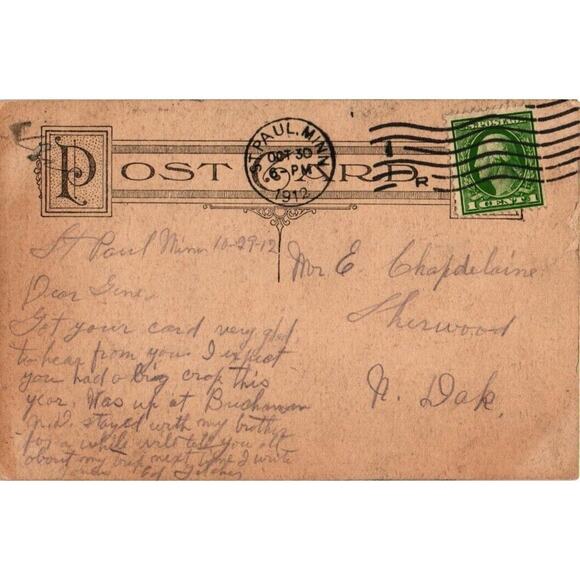 POST CARD
ST. PAUL, MINN.
OCT 30
6-PM
1912
1
R
U.S. POSTAGE
1 CENT 1
St Paul Minn 10-29-12
Dear Gene,
Got your card very glad
to hear from you. I expect
you had a big crop this
year. Was up at Buchanan
N.D. stayed with my brother
for a while will tell you all
about my trip next time I write
Ed
Mr E. Chapdelaine
Sherwood
N. Dak.